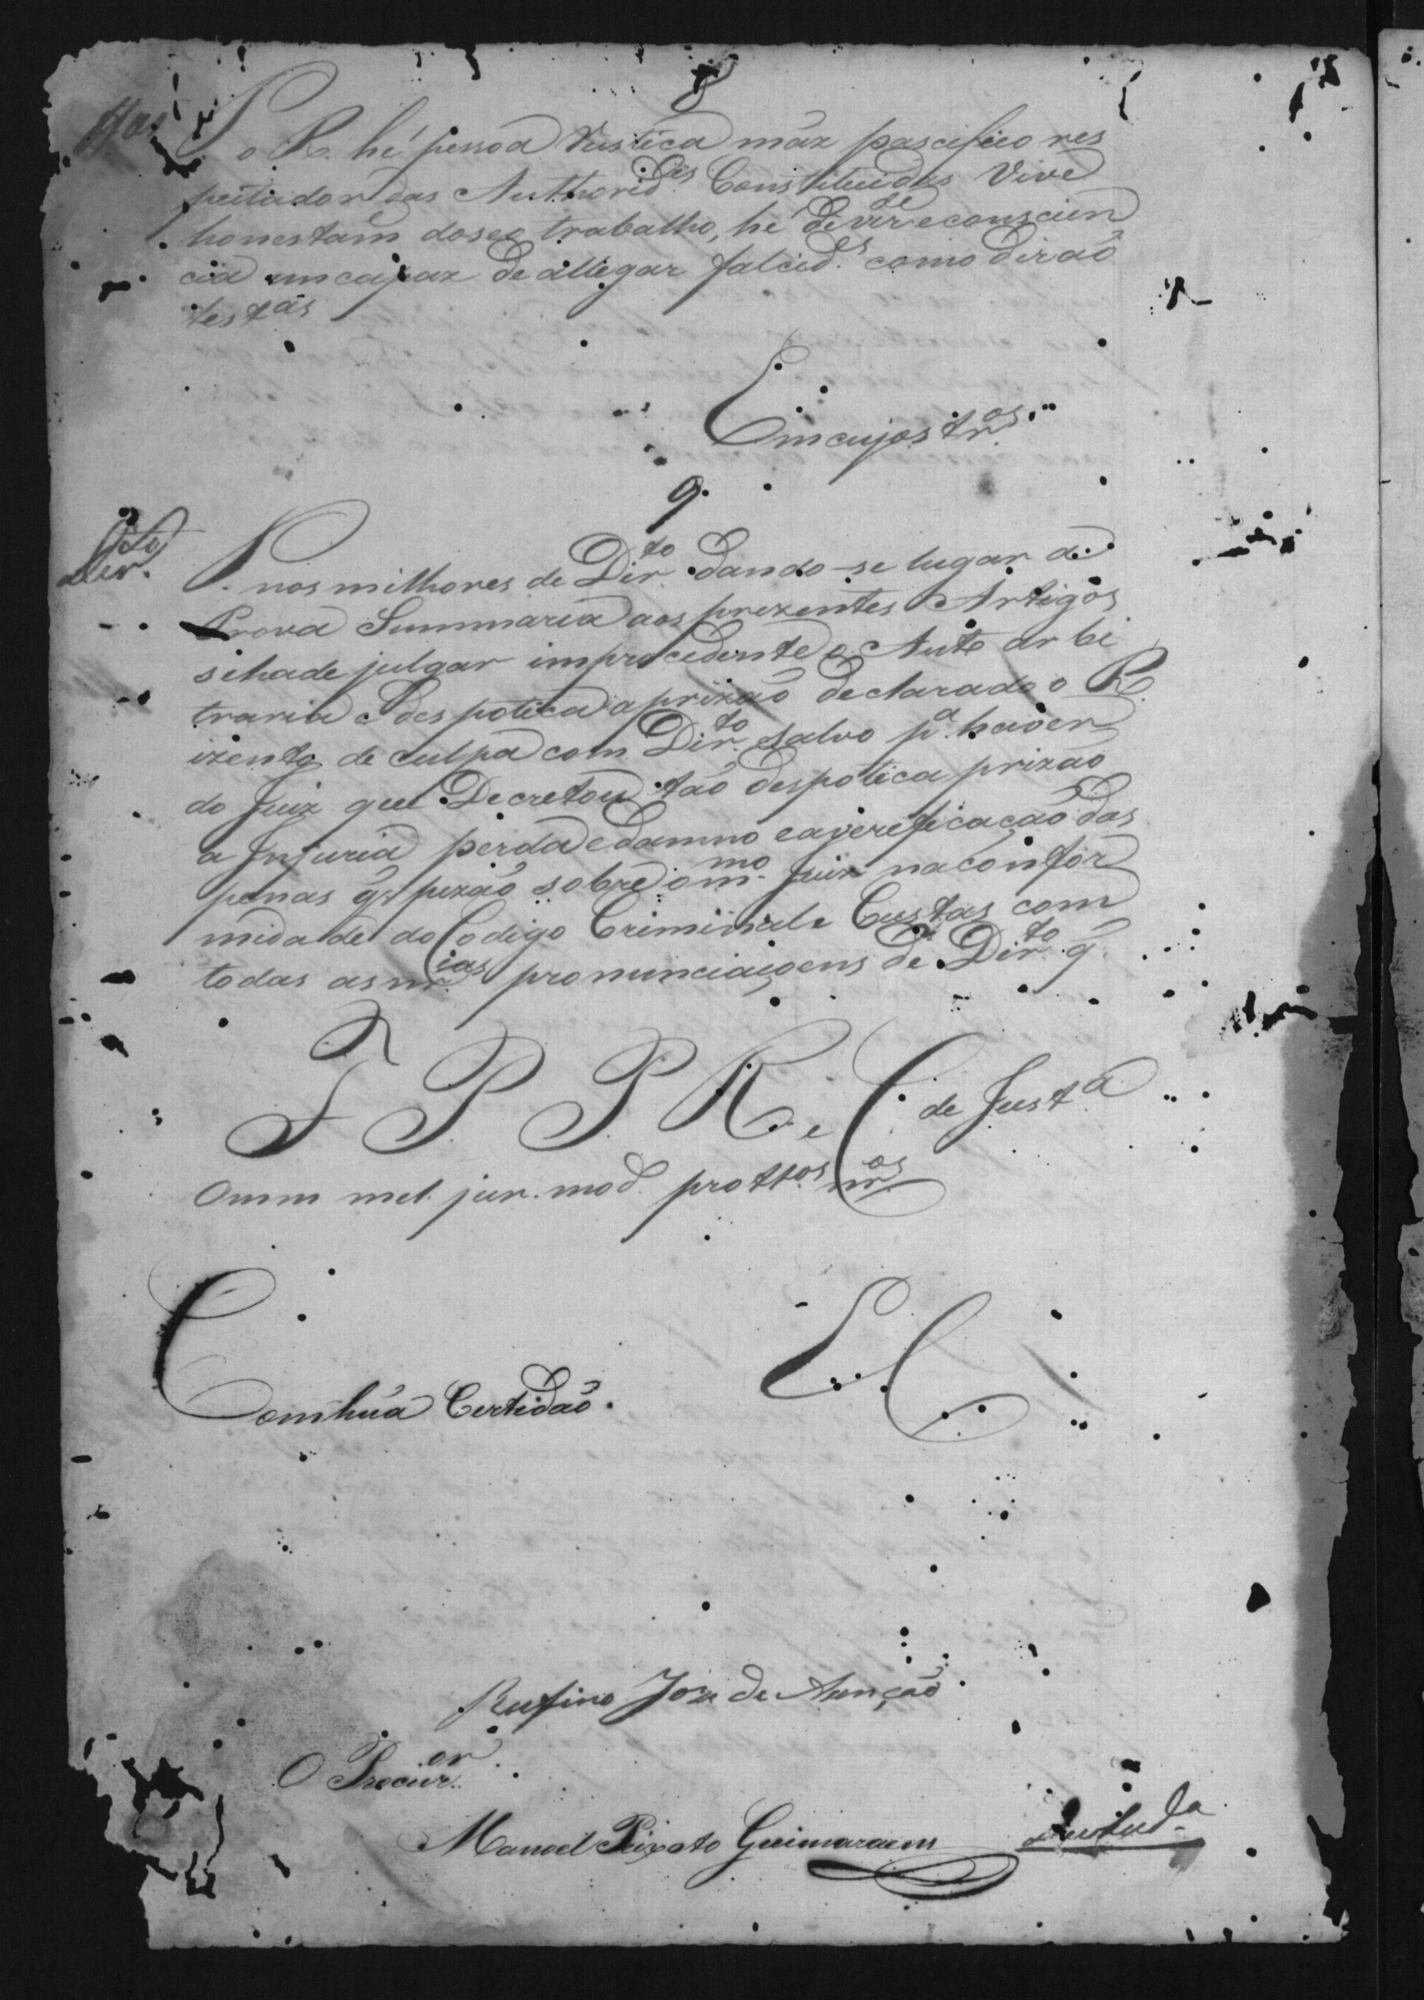 8
P. o R. hé pessoa Rustica máz pascifico res
peitador das Authorid.es Constituidas Vive
honestam.te doseo trabalho, he de verd.e econscien
cia uncapaz de allegar falcid.es como dirão
test.as
Emcujos tr.os
9.
P. nos milhores de Dir.to dando-se lugar di
Prova Summaria aos prezentes Artigos
sehade julgar improcedente o Auto arbi
traria e despotica aprizão declarado o R.
izento de culpa com Dir.to salvo p.a haver
do Juiz que Decretou tão despotica prizão
a Injuria perda edamno eavereficacão das
penas q. pezão sobre o m.mo Juiz naconfor
midade do Codigo Criminal e Custas com
todas as nr.ias pronunciaçoens de Dir.to q.
F P P R. e C de Just.a
Omm mel. jur. mod. prott.os nr.os
E C
Com húa Certidão.
Rufino Joze de Asunção
O Procur.or
Manoel Peixoto Guimaraens